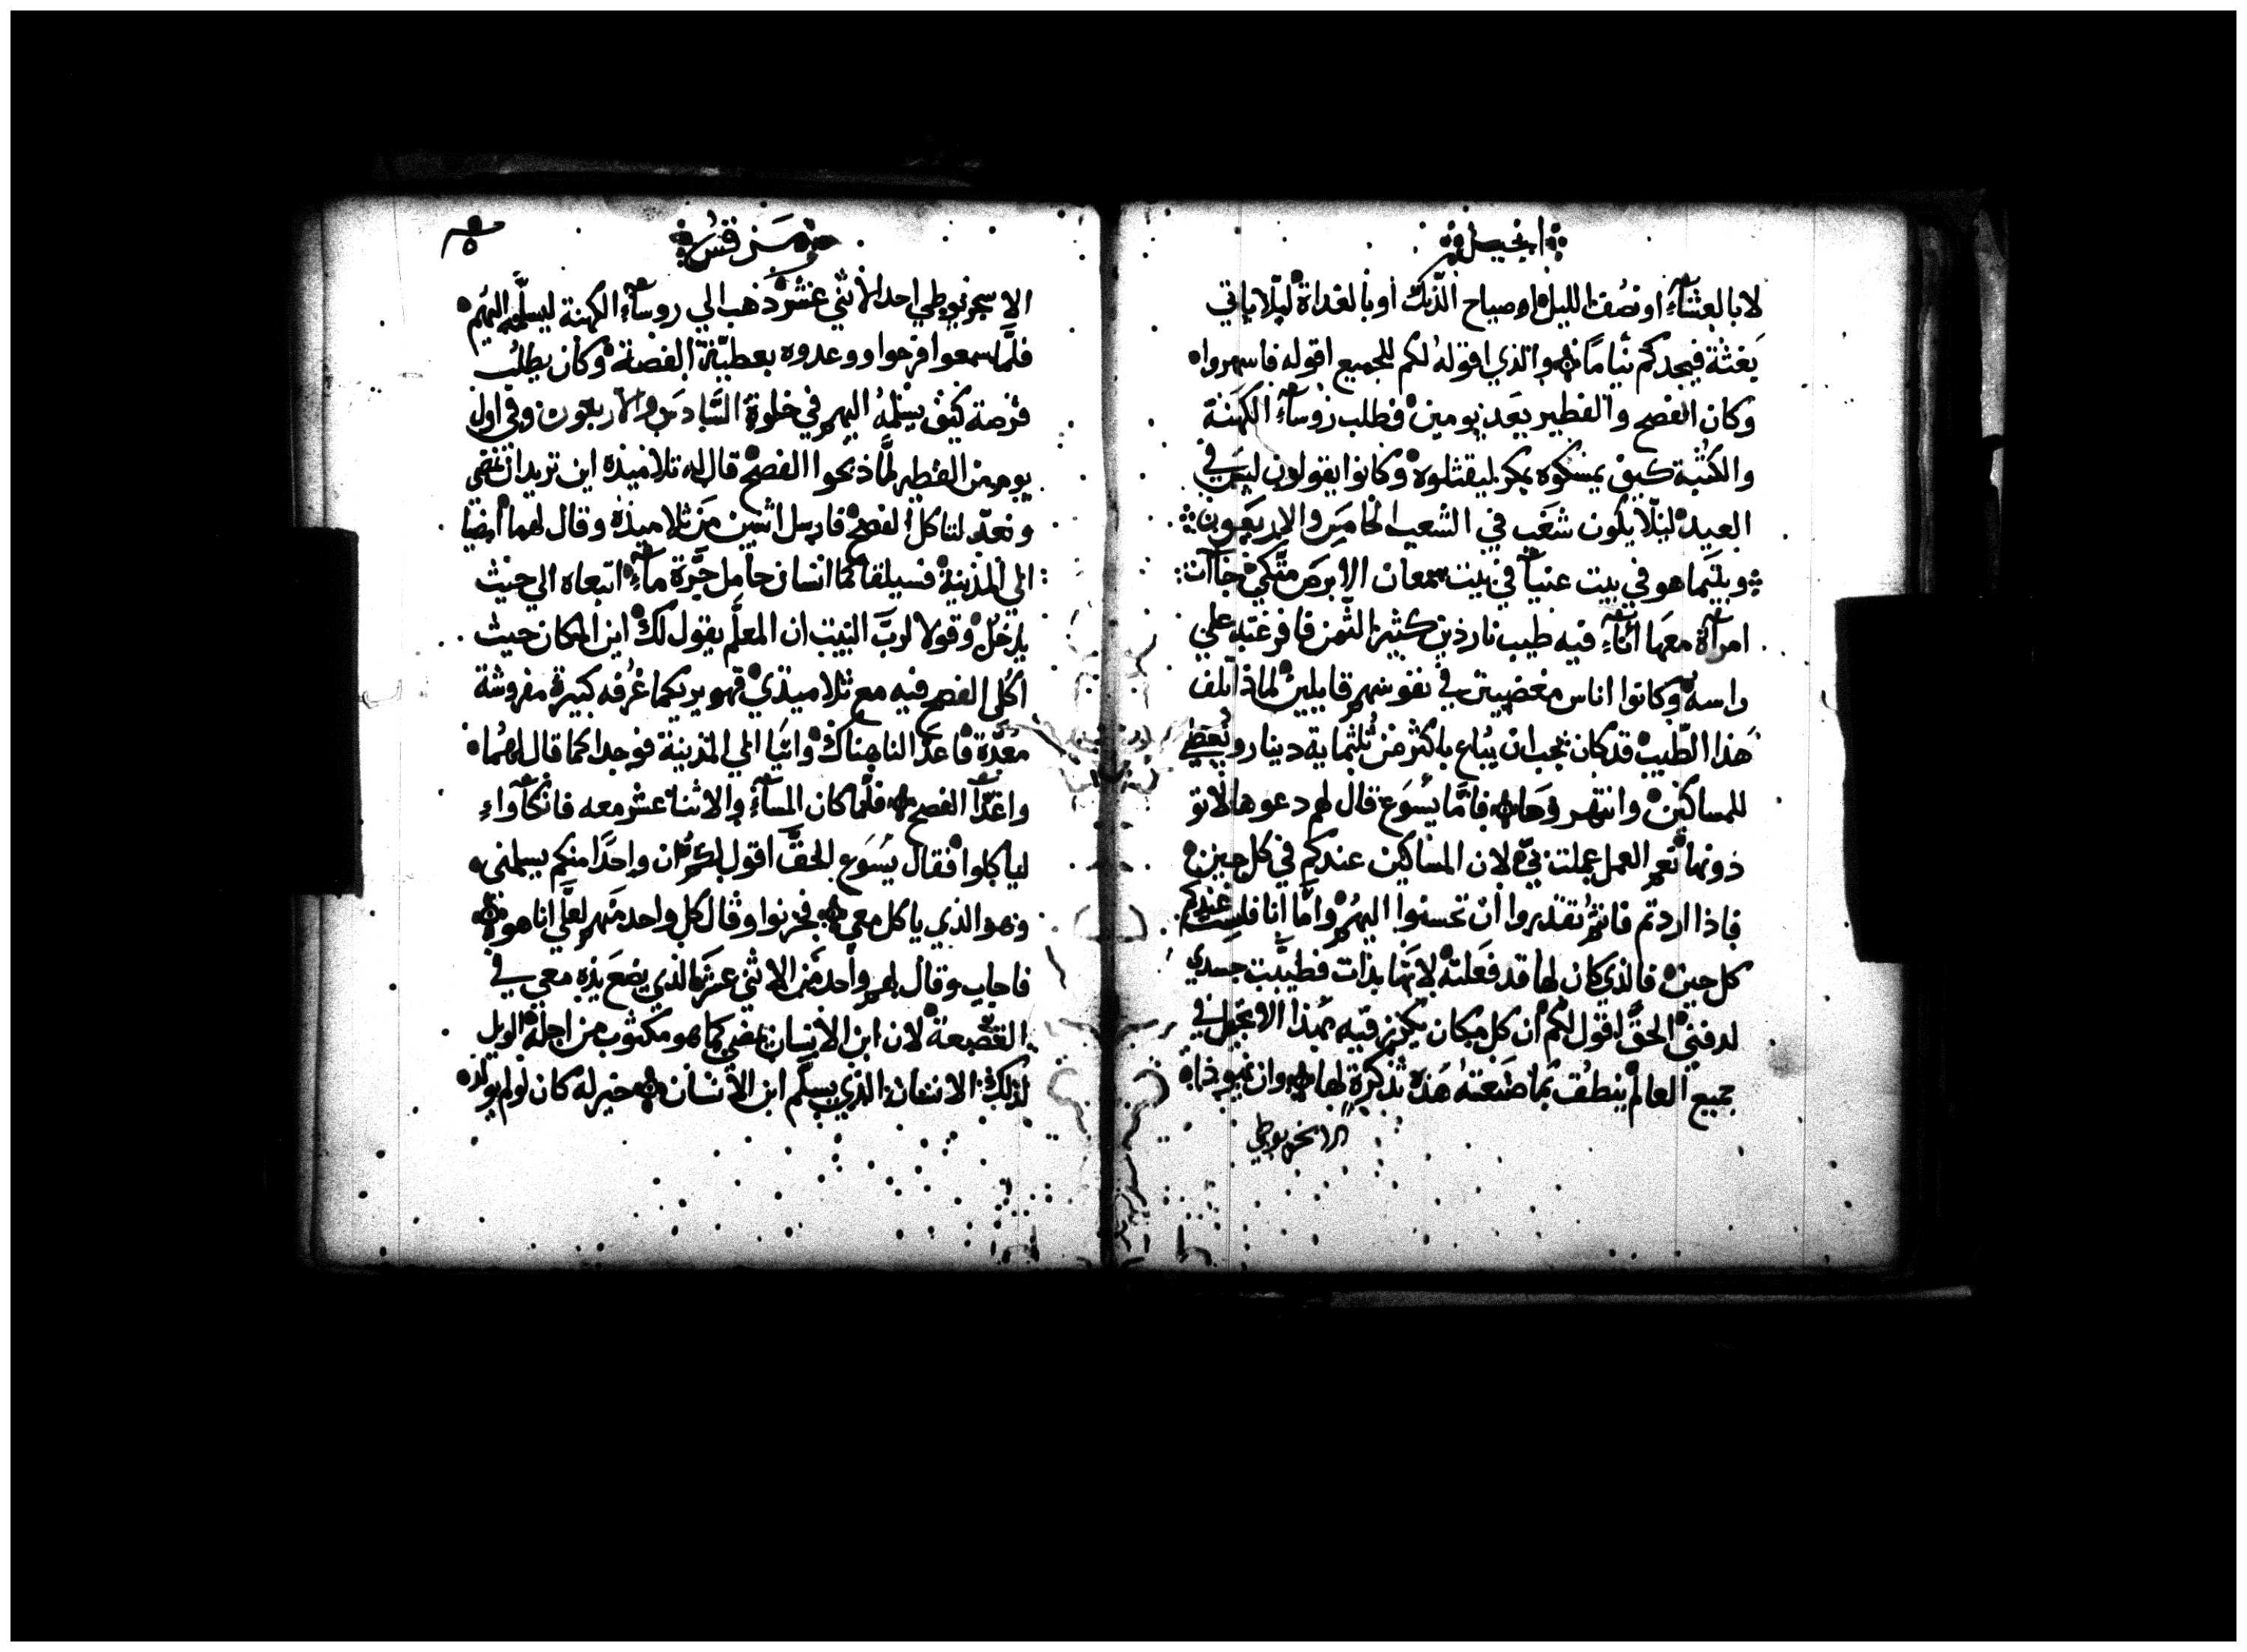 انجيل
لا بالعشآء او نصف الليل او صباح الديك او بالغداة ليلا ياتي
بغتة فيجدكم نياماً والذي اقوله لكم للجميع اقوله فاسهروا
وكان الفصح والفطير بعد يومين فطلب روسآء الكهنة
والكتبة كيف يمسكوه بمكر ليقتلوه وكانوا يقولون ليس في
العيد ليلّا يكون شغب في الشعب الخامس والاربعون
وبينما هو في بيت عنيآ في بيت سمعان الابرص متكي جآات
امراة معها انآء فيه طيب ناردين كثير الثمن فافرغته علي
راسه وكانوا اناس مغضبين في نفوسهم قايلين لماذا تلف
هذا الطيب قد كان يجب ان يباع باكثر من ثلثماية دينار ويعطي
للمساكين وانتهروها فامّا يسوع قال لهم دعوها لا تو
ذونها نعم العمل عملت بيّ لان المساكين عندكم في كل حين
فاذا اردتم فانتم تقدروا ان تحسنوا اليهم وامّا انا فليس عندكم
كل حين فالذي كان لها قد فعلته لانها بدات فطيّبت جسدي
لدفني الحقّ اقول لكم ان كل مكان يكرز فيه بهذا الانجيل في
جميع العالم ينطق بما صنعته هذه تذكرة لها وان يهوذا
الاسخريوطي
مرقس
الاسخريوطي احد الاثني عشر ذهب الي روسآء الكهنة ليسلمه اليهم
فلمّا سمعوا فرحوا ووعدوه بعطيّة الفضة وكان يطلب
فرصة كيف يسلمه اليهم في خلوة السادس والاربعون وفي اول
يوم من الفطير لمّا ذبحوا الفصح قال له تلاميذه اين تريد ان نمضي
ونعدّ لتاكل الفصح فارسل اثنين من تلاميذه وقال لهما امضيا
الي المدينة فسيلقاكما انسان حامل جرّة مآء اتبعاه الي حيث
يدخل وقولا لرب البيت ان المعلّم يقول لك اين المكان حيث
اكل الفصح فيه مع تلاميذي فهو يريكما غرفه كبيرة مفروشة
معدّة فاعدّا لنا هناك واتيا الي المدينة فوجدا كما قال لهما
واعدّا الفصح فلمّا كان المسآء والاثنا عشر معه فاتكآواء
لياكلوا فقال يسوع الحقّ اقول لكم ان واحدًا منكم يسلمني
وهو الذي ياكل معي فحزنوا وقال كل واحد منهم لعلّي انا هو
فاجاب وقال لهم واحد من الاثني عشر الذي يضع يده معي في
القصعة لان ابن الانسان يمضي كما هو مكتوب من اجله الويل
لذلك الانسان الذي يسلّم ابن الانسان خير له كان لو لم يولد